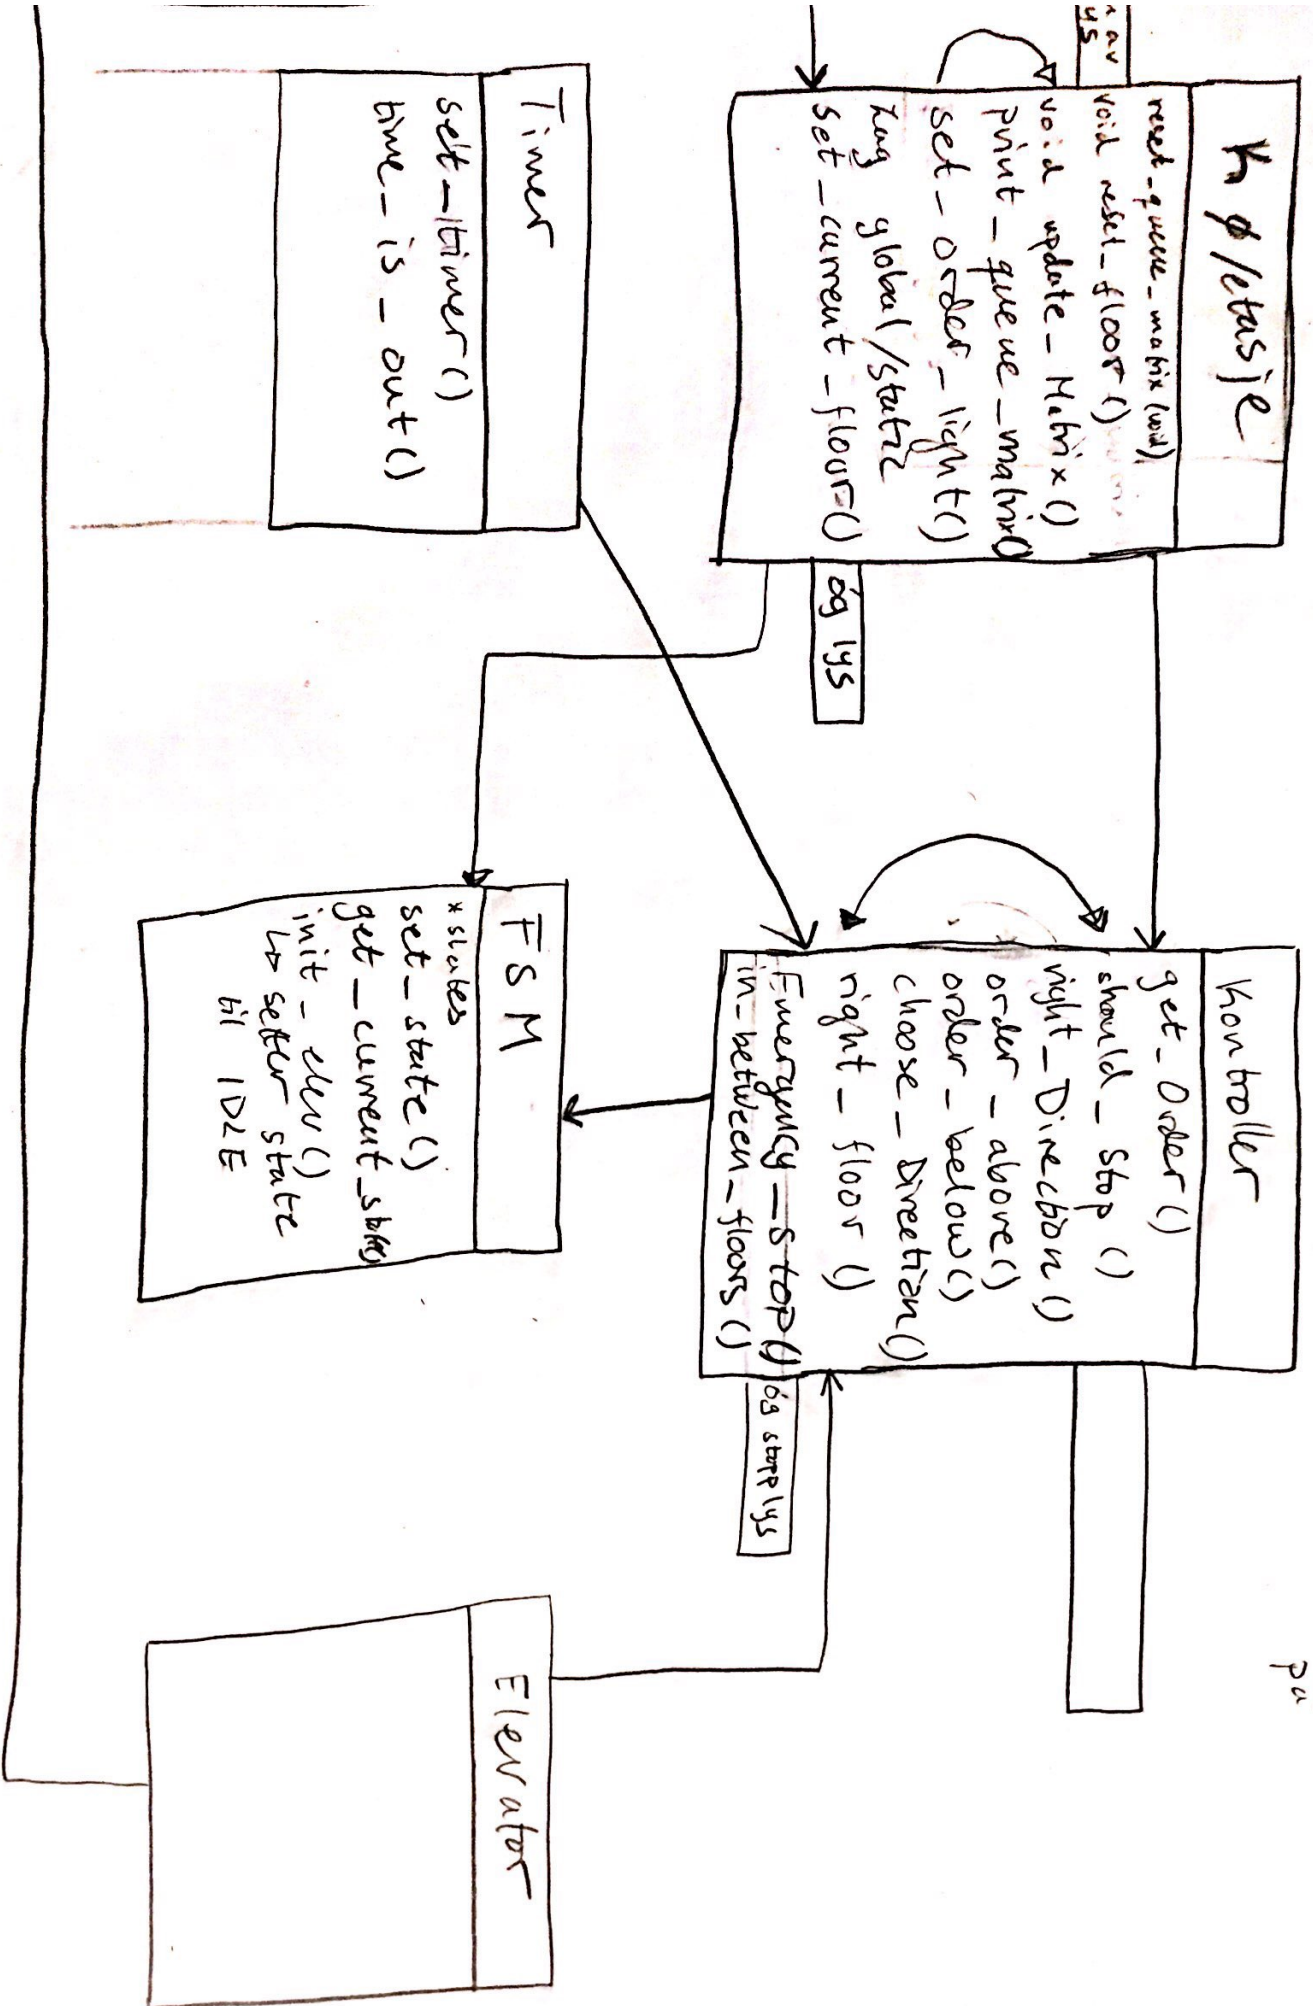 kø/etasje
reset_queue_matrix(void)
void reset_floor()
void update_Matrix()
print_queue_matrix()
set_order_light()
Lag global/static
set_current_floor()
av
ys
óg lys
Kontroller
get_Order()
should_Stop()
right_Direction()
order_above()
order_below()
choose_Direction()
right_floor()
Emergency_stop()
in_between_floors()
óg stopp lys
på
Timer
set_timer()
time_is_out()
FSM
* states
set_state()
get_current_state()
init_elev()
↳ setter state
til IDLE
Elevator